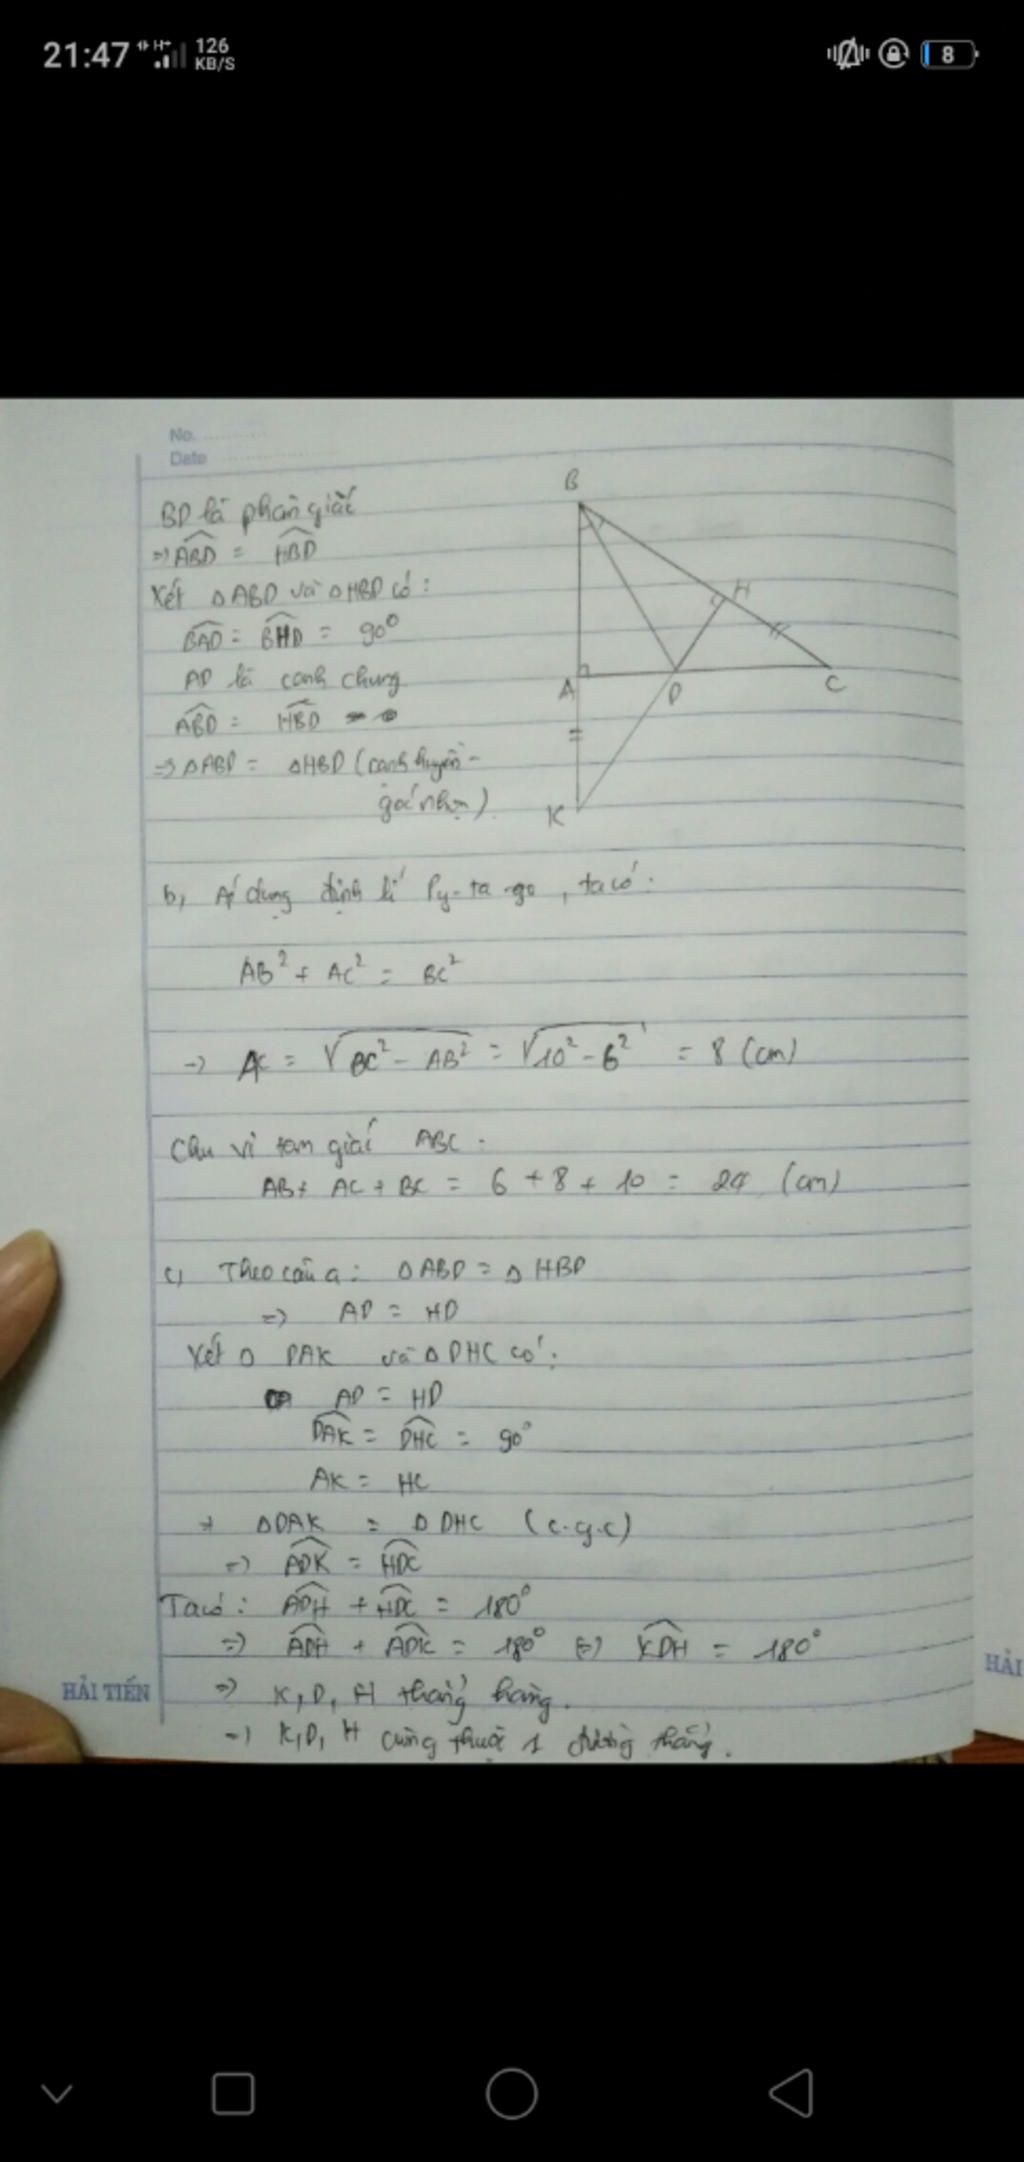 21:47 H+ 126 KB/S 8
No.
Date
B
BD là phân giác
=> ABD = HBD
Xét Δ ABD và Δ HBD có:
H
BAD = BHD = 90°
AD là cạnh chung
A D C
ABD = HBD
=> Δ ABD = Δ HBD (cạnh huyền -
góc nhọn)
K
b, Áp dụng định lí Py-ta-go, ta có:
AB² + AC² = BC²
=> AC = √BC² - AB² = √10² - 6² = 8 (cm)
Chu vi tam giác ABC:
AB + AC + BC = 6 + 8 + 10 = 24 (cm)
c, Theo câu a: Δ ABD = Δ HBD
=> AD = HD
Xét Δ DAK và Δ DHC có:
AD = HD
DAK = DHC = 90°
AK = HC
=> Δ DAK = Δ DHC (c.g.c)
=> ADK = HDC
Ta có: ADH + HDC = 180°
=> ADH + ADK = 180° (=) KDH = 180°
=> K, D, H thẳng hàng.
=> K, D, H cùng thuộc 1 đường thẳng.
HẢI TIẾN
HẢI